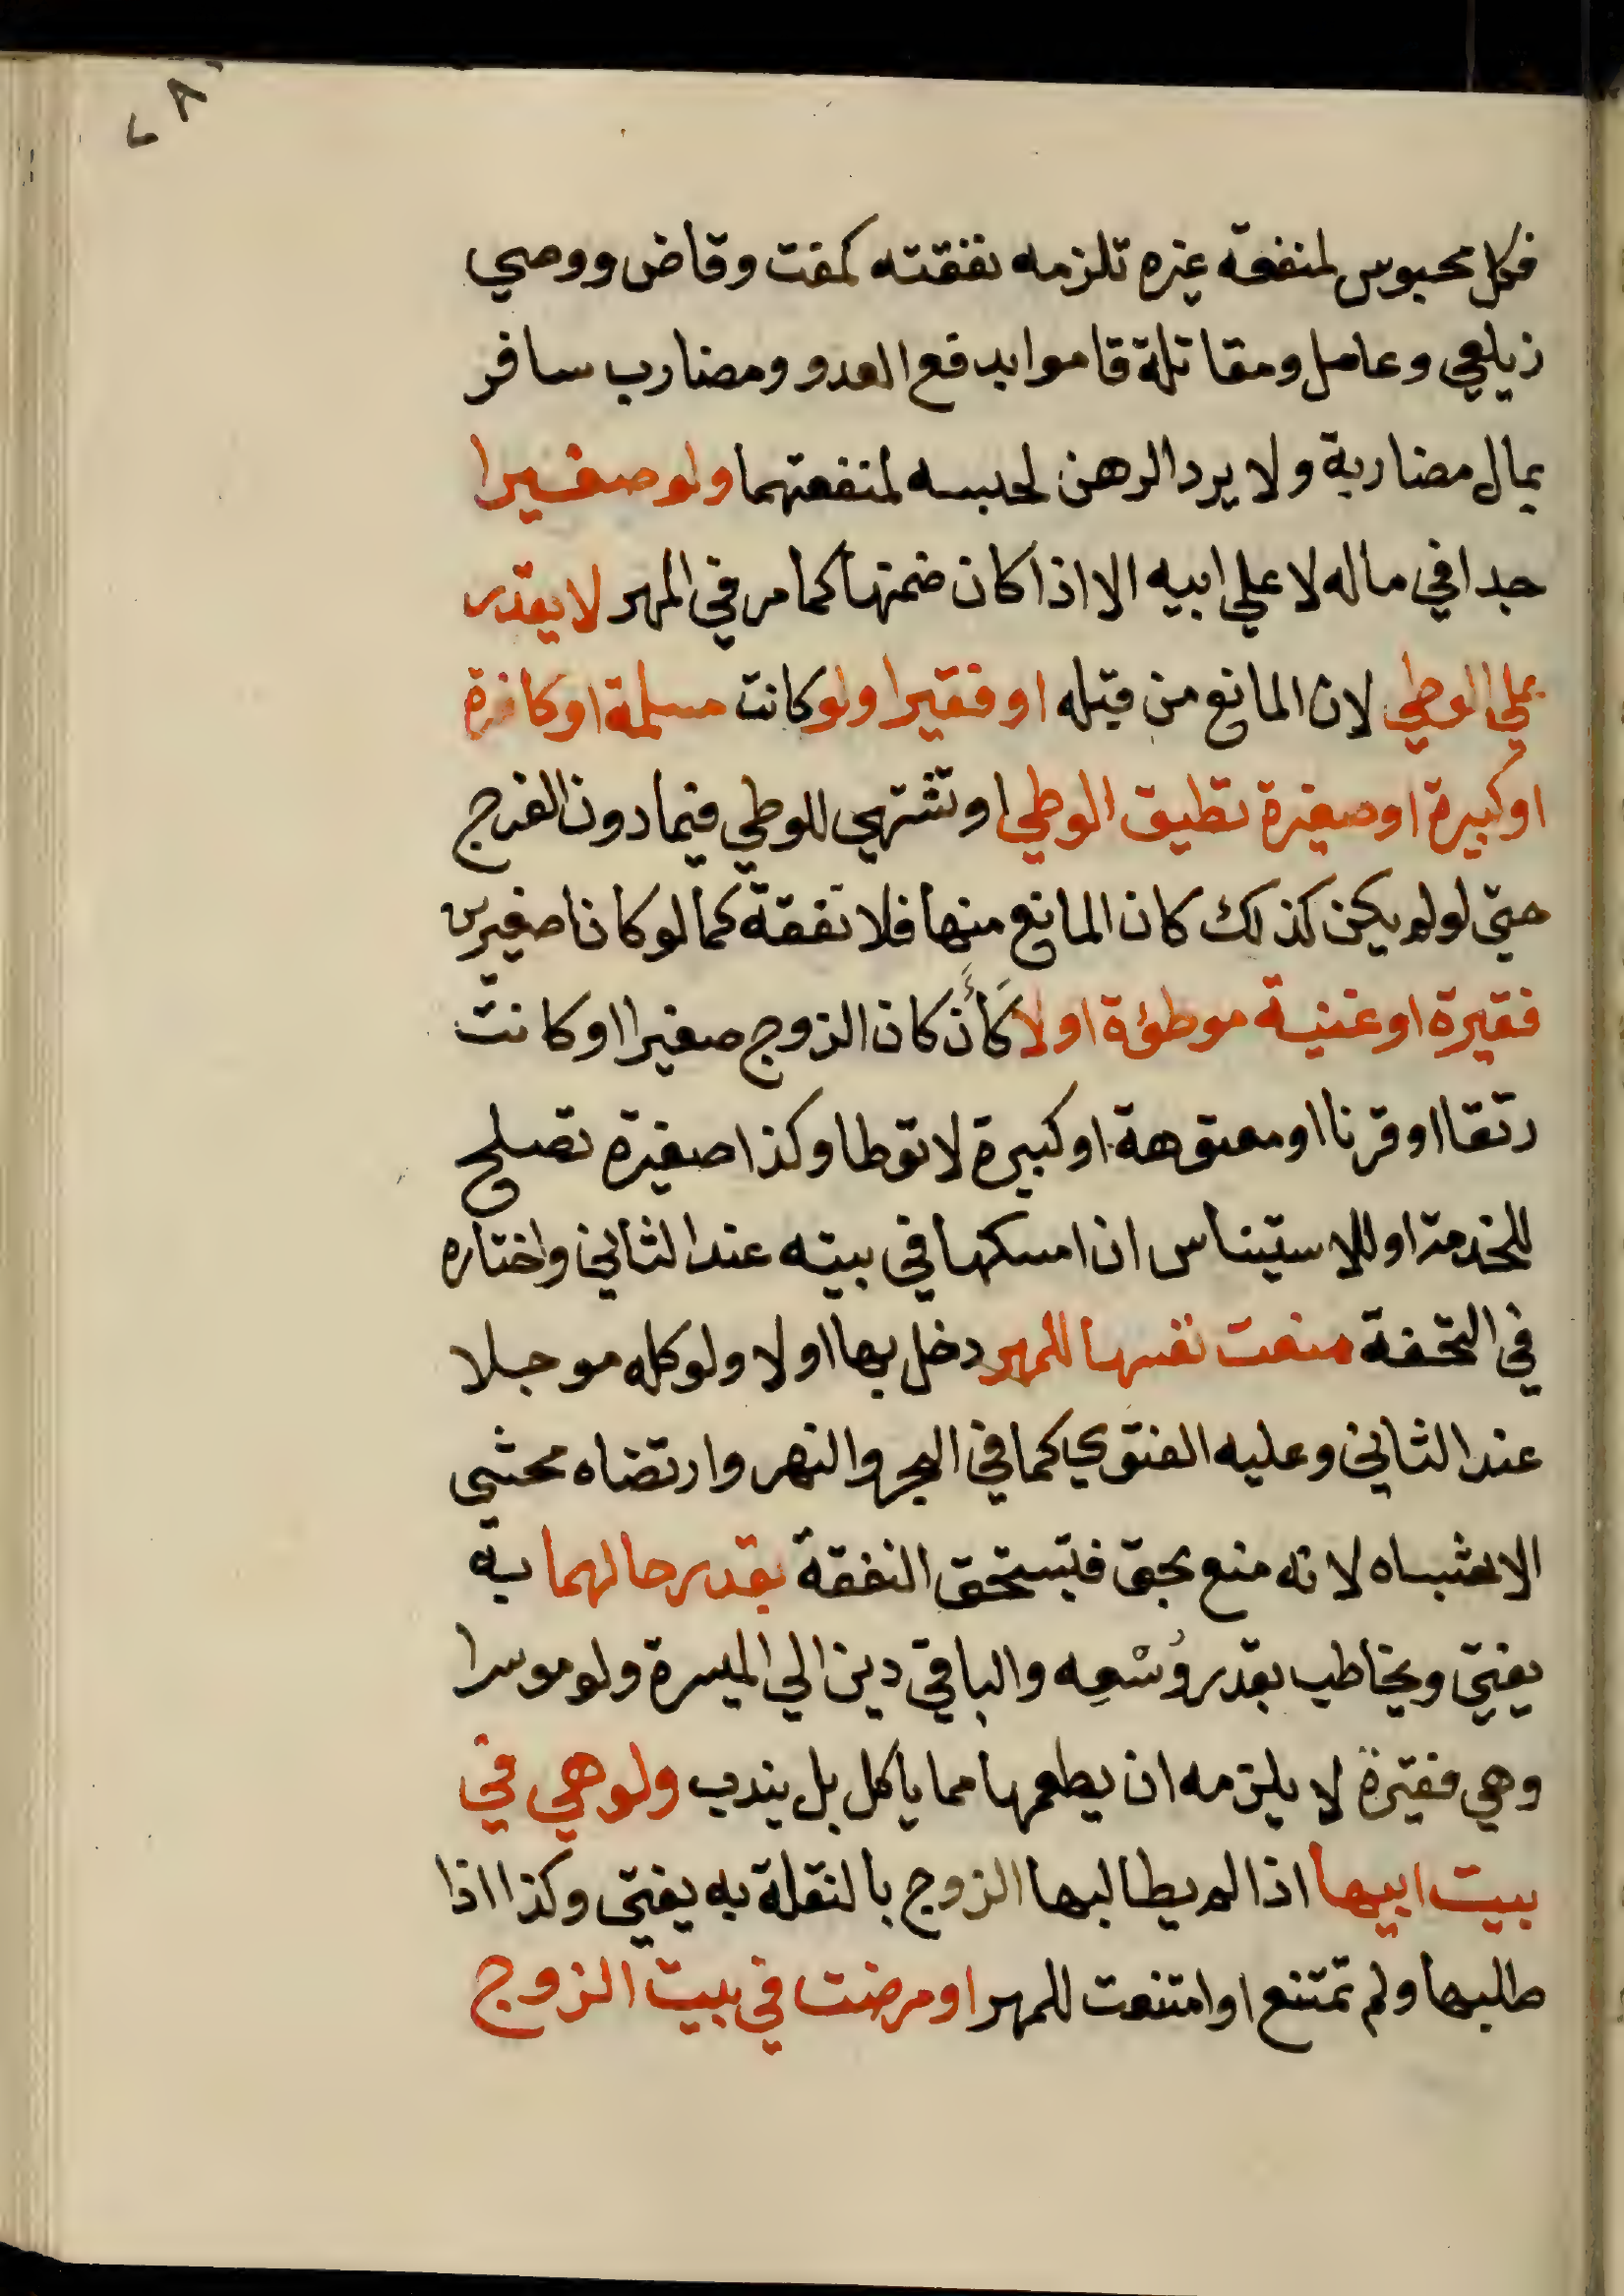 فكل محبوس لمنفعة غيره تلزمه نفقته كمفت وقاض ووصي
زيلعي وعامل ومقاتلة قاموا بدفع العدو ومضارب سافر
بمال مضاربة ولا يرد الرهن لحبسه لمنفعتهما ولو صغيرا
جدا في ماله لا علي ابيه الا اذا كان ضمنها كما مر في المهر لا يقدر
علي الوطي لان المانع من قبله او فقيرا ولو كانت مسلمة او كافرة
او كبيرة او صغيرة تطيق الوطي او تشتهي للوطي فيما دون الفرج
حتي لو لم يكن كذلك كان المانع منها فلا نفقة كما لو كانا صغيرين
فقيرة او غنية موطؤة او لا كَأَن كان الزوج صغيرا او كانت
رتقا او قرنا او معتوهة او كبيرة لا توطا وكذا صغيرة تصلح
للخدمة او للاستيناس ان امسكها في بيته عند الثاني واختاره
في التحفة منعت نفسها للمهر دخل بها او لا ولو كله موجلا
عند الثاني وعليه الفتوي كما في البحر والنهر وارتضاه محشي
الاشباه لانه منع بحق فتستحق النفقة بقدر حالهما به
يفتي ويخاطب بقدر وُسْعِه والباقي دين الي الميسرة ولو موسرا
وهي فقيرة لا يلزمه ان يطعمها مما ياكل بل يندب ولو هي في
بيت ابيها اذا لم يطالبها الزوج بالنقلة به يفتي وكذا اذا
طالبها ولم تمتنع او امتنعت للمهر او مرضت في بيت الزوج